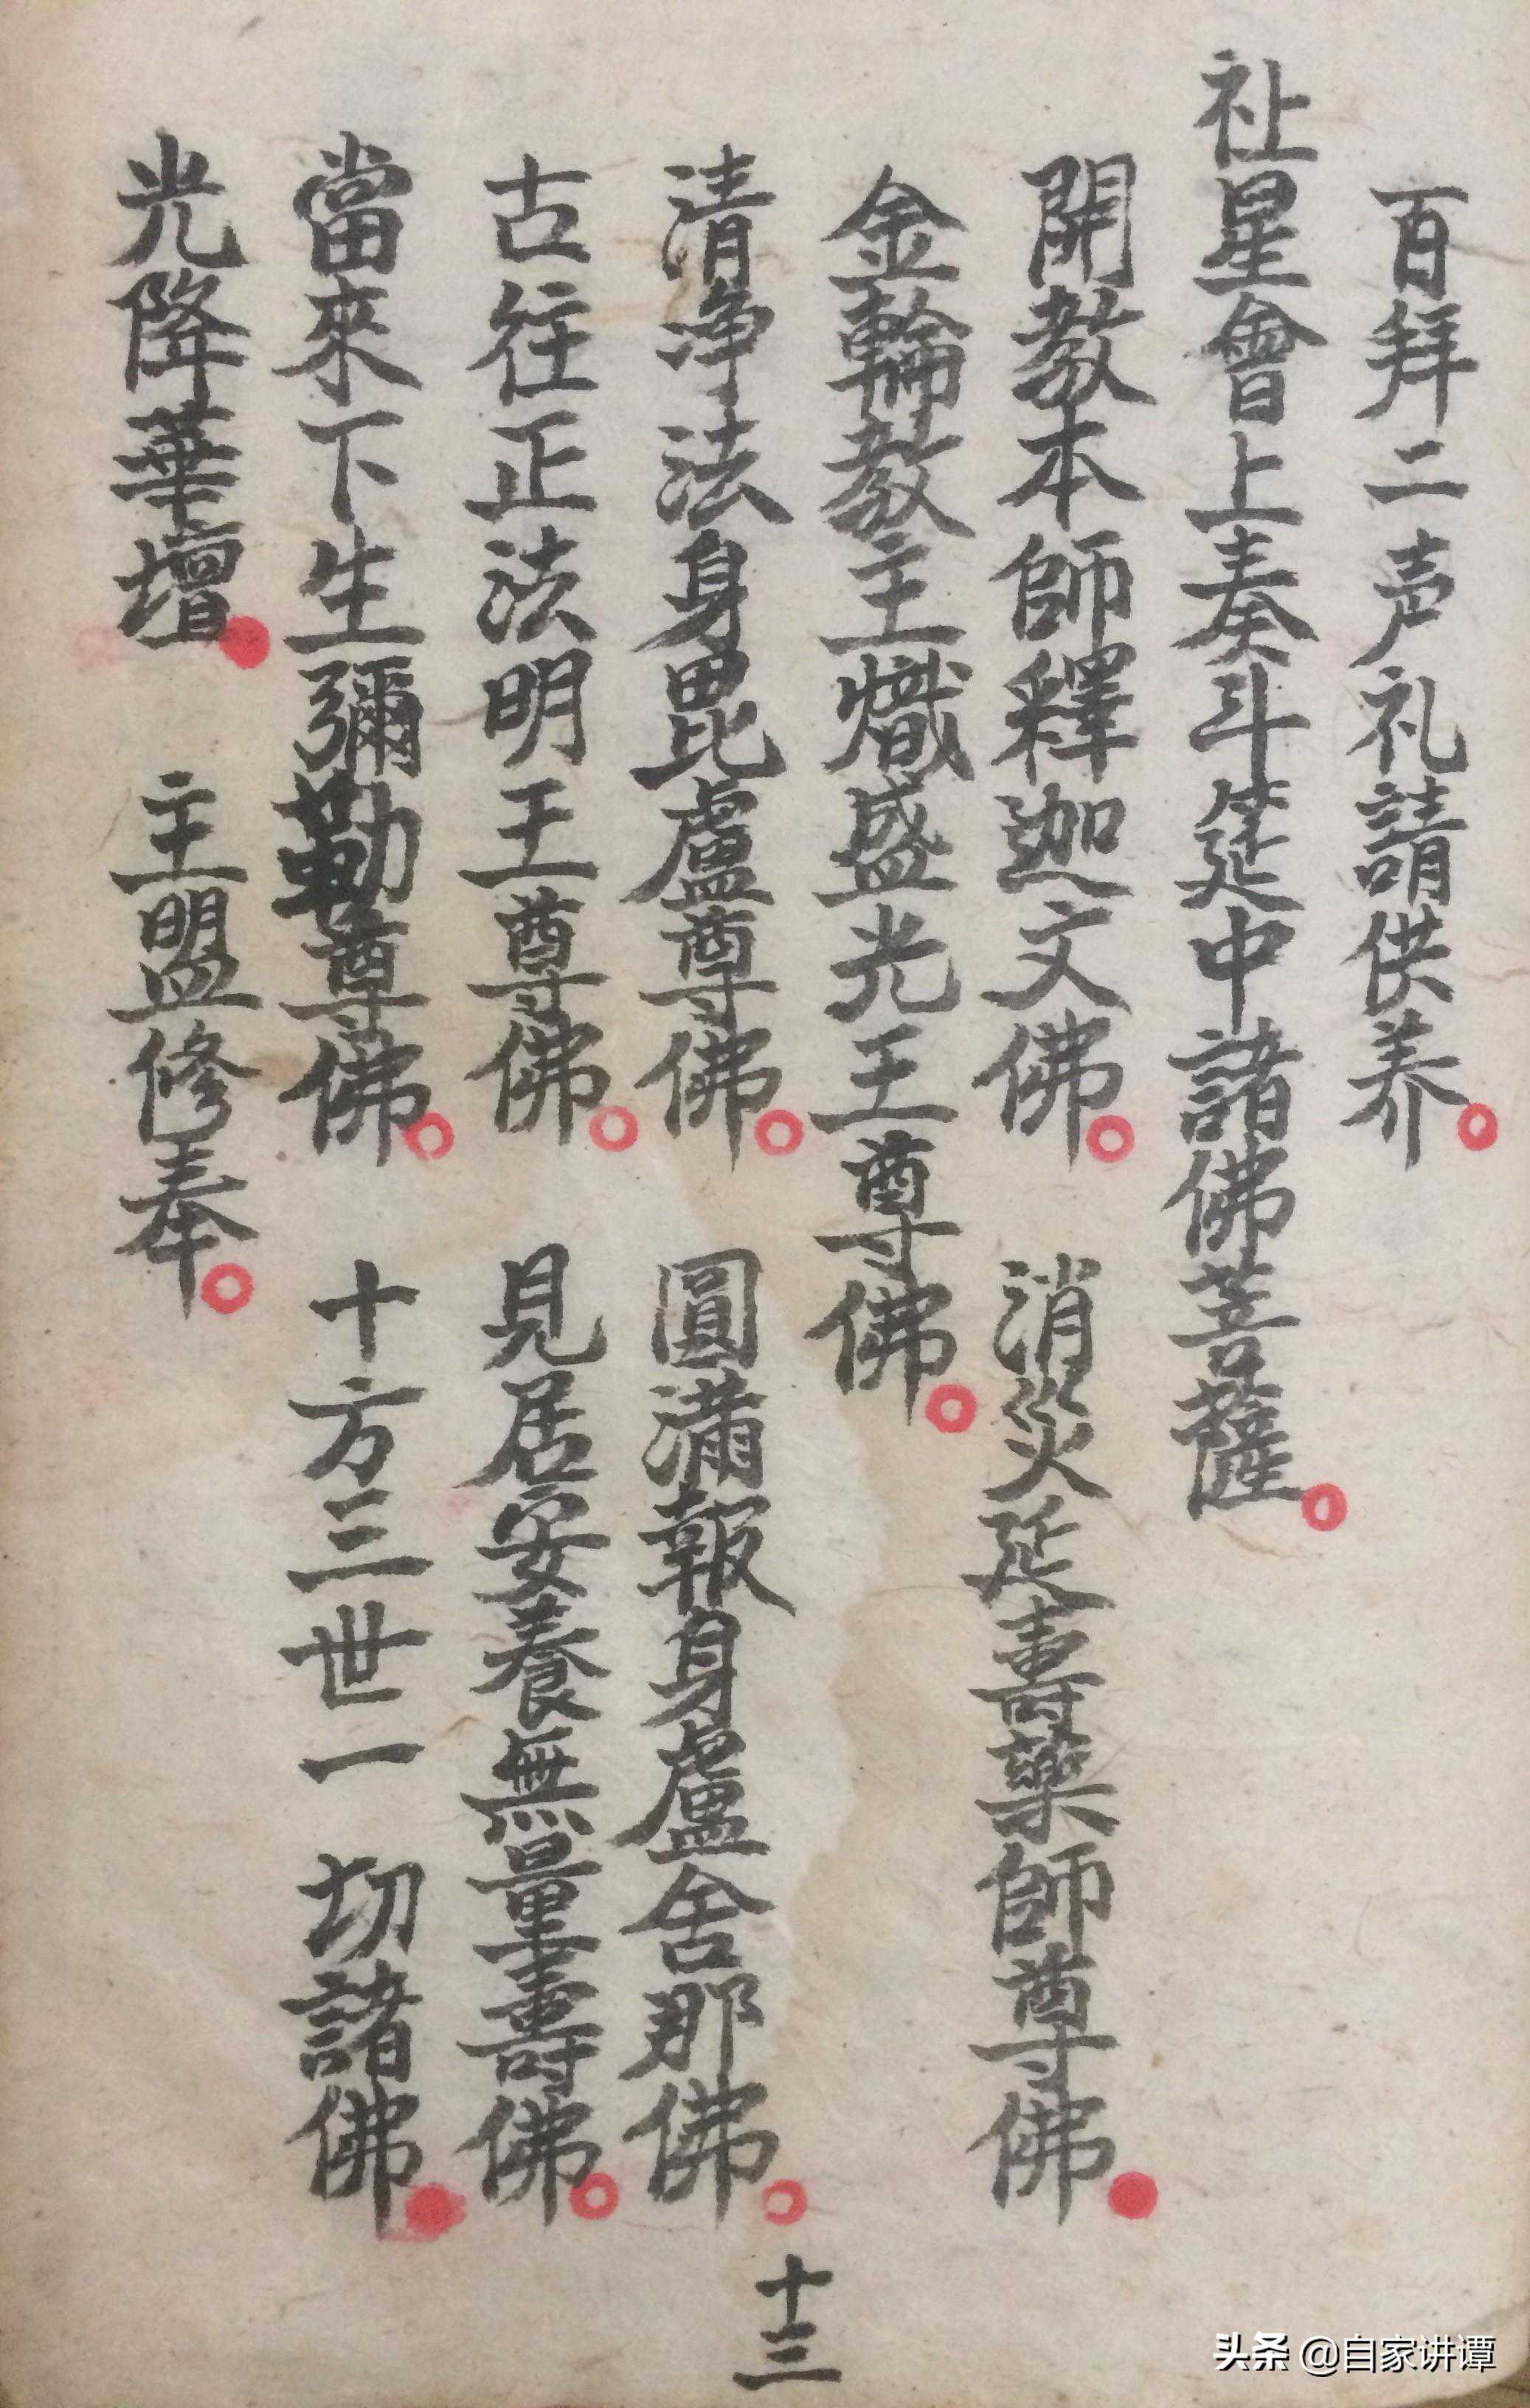 百拜二声礼請供养
祉星會上奏斗筵中諸佛菩薩
開教本師釋迦文佛 消災延壽藥師尊佛
金輪教主熾盛光王尊佛
清净法身毘盧尊佛 圓滿報身盧舍那佛
古往正法明王尊佛 見居安養無量壽佛
當來下生彌勒尊佛 十方三世一切諸佛
光降華壇 主盟修奉
十三
头条 @自家讲谭